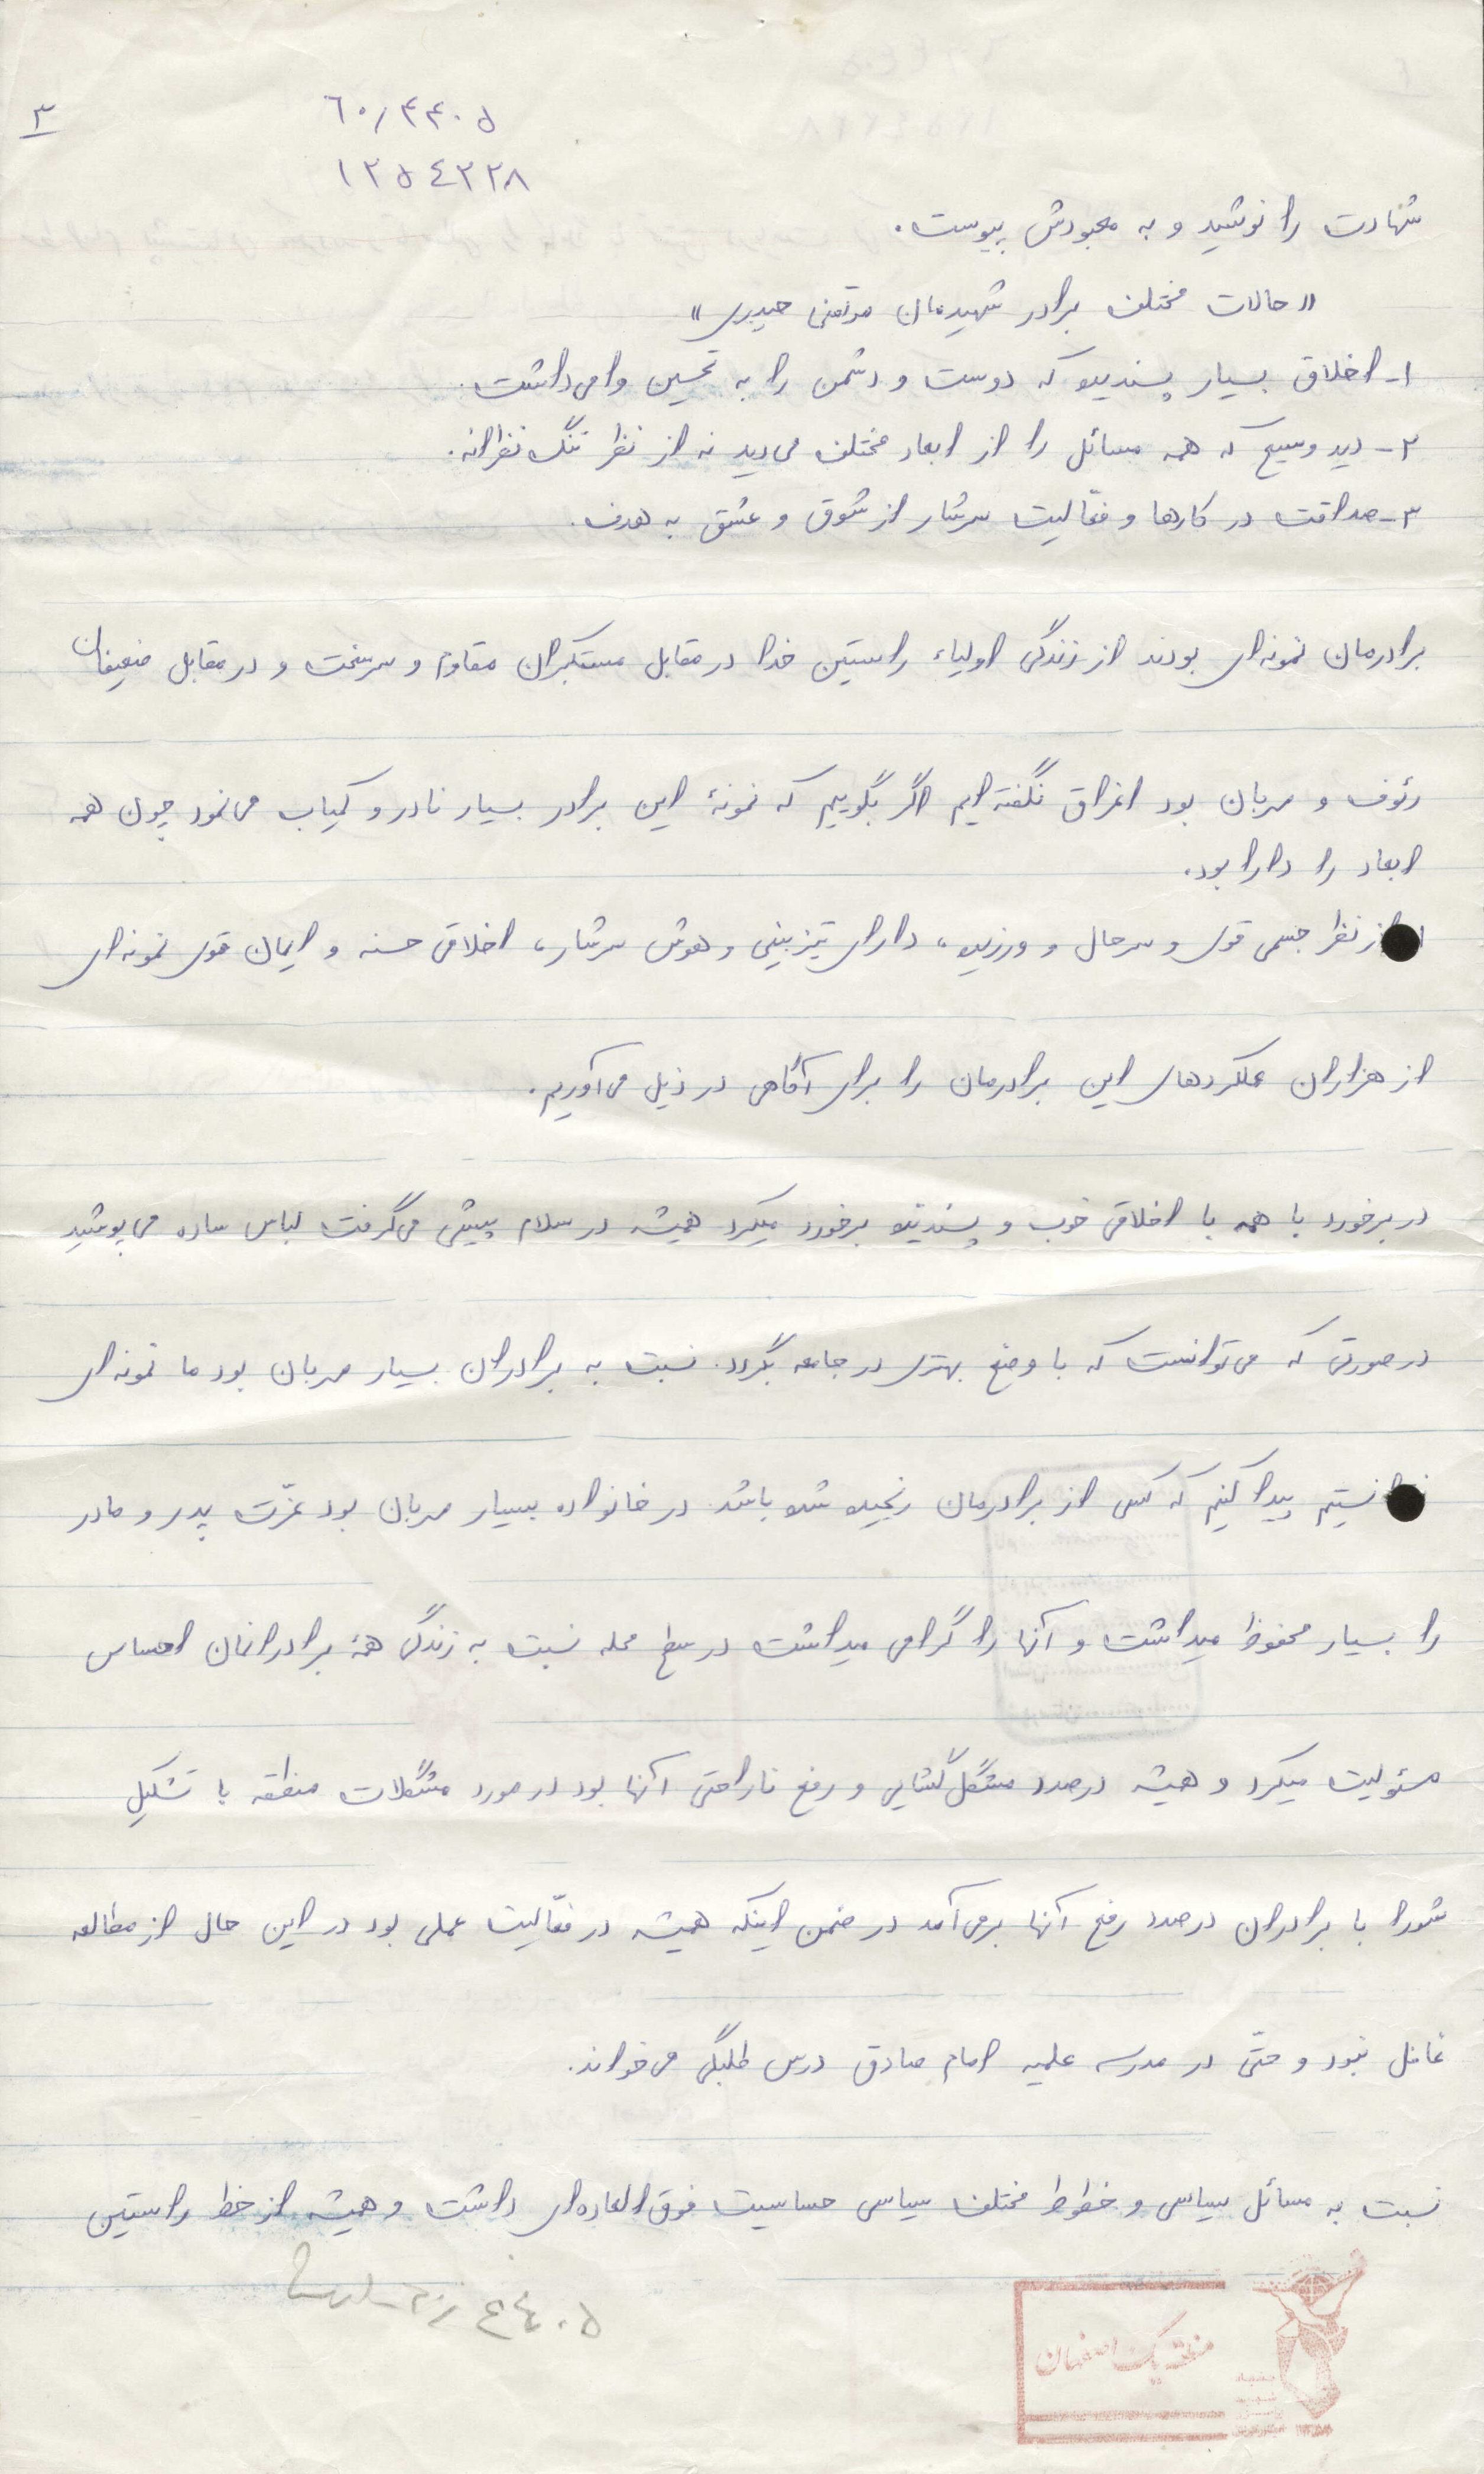 ۳
۶۰/۴۴۰۵
۱۲۵۴۲۲۸
شهادت را نوشید و به معبودش پیوست.
«حالات مختلف برادر شهیدمان مرتضی حیدری»
۱- اخلاق بسیار پسندیده که دوست و دشمن را به تحسین وامی‌داشت.
۲- دید وسیع که همه مسائل را از ابعاد مختلف می‌دید نه از نظر تنگ نظرانه.
۳- صداقت در کارها و فعّالیت سرشار از شوق و عشق به هدف.
برادرمان نمونه‌ای بودند از زندگی اولیاء راستین خدا در مقابل مستکبران مقاوم و سرسخت و در مقابل ضعیفان
رئوف و مهربان بود اغراق نگفته‌ایم اگر بگوییم که نمونۀ این برادر بسیار نادر و کمیاب می‌نمود چون همه
ابعاد را دارا بود.
از نظر جسمی قوی و سرحال و ورزیده، دارای تیزبینی و هوش سرشار، اخلاق حسنه و ایمان قوی نمونه‌ای
از هزاران عملکردهای این برادرمان را برای آگاهی در ذیل می‌آوریم.
در برخورد با همه با اخلاقی خوب و پسندیده برخورد میکرد همیشه در سلام پیشی می‌گرفت لباس ساده می‌پوشید
در صورتی که می‌توانست که با وضع بهتری در جامعه بگردد. نسبت به برادران بسیار مهربان بود ما نمونه‌ای
نتوانستیم پیدا کنیم که کسی از برادرمان رنجیده شده باشد. در خانواده بسیار مهربان بود عزّت پدر و مادر
را بسیار محفوظ میداشت و آنها را گرامی میداشت در سطح محله نسبت به زندگی همۀ برادرانمان احساس
مسئولیت میکرد و همیشه درصدد مشگل گشایی و رفع ناراحتی آنها بود در مورد مشگلات منطقه با تشکیل
شورا با برادران درصدد رفع آنها برمی‌آمد در ضمن اینکه همیشه در فعّالیت عملی بود در این حال از مطالعه
غافل نبود و حتّی در مدرسه علمیه امام صادق درس طلبگی می‌خواند.
نسبت به مسائل سیاسی و خطوط مختلف سیاسی حساسیت فوق العاده‌ای داشت و همیشه از خط راستین
۴۴۰۵
منطقه یک اصفهان